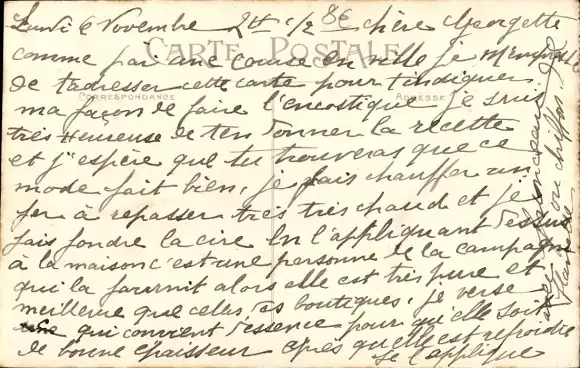 Lundi 6 Novembre 2H 1/2 chère Georgette
CARTE POSTALE
comme j'ai une course en ville je m'empresse
de t'adresser cette carte pour t'indiquer
CORRESPONDANCE
ADRESSE
ma façon de faire l'encostique, je suis
très Heureuse de t'en donner la recette
et j'espère que tu trouveras que ce
mode fait bien, je fais chauffer un
fer à repasser très très chaud et je
fais fondre la cire en l'appliquant dessus
à la maison c'est une personne de la campagne
qui la fournit alors elle est très pure et
meilleure que celles des boutiques, je verse
qui convient d'essence pour qu'elle soit
de bonne épaisseur après qu'elle est refroidie
je l'applique
avec
ou chiffon de